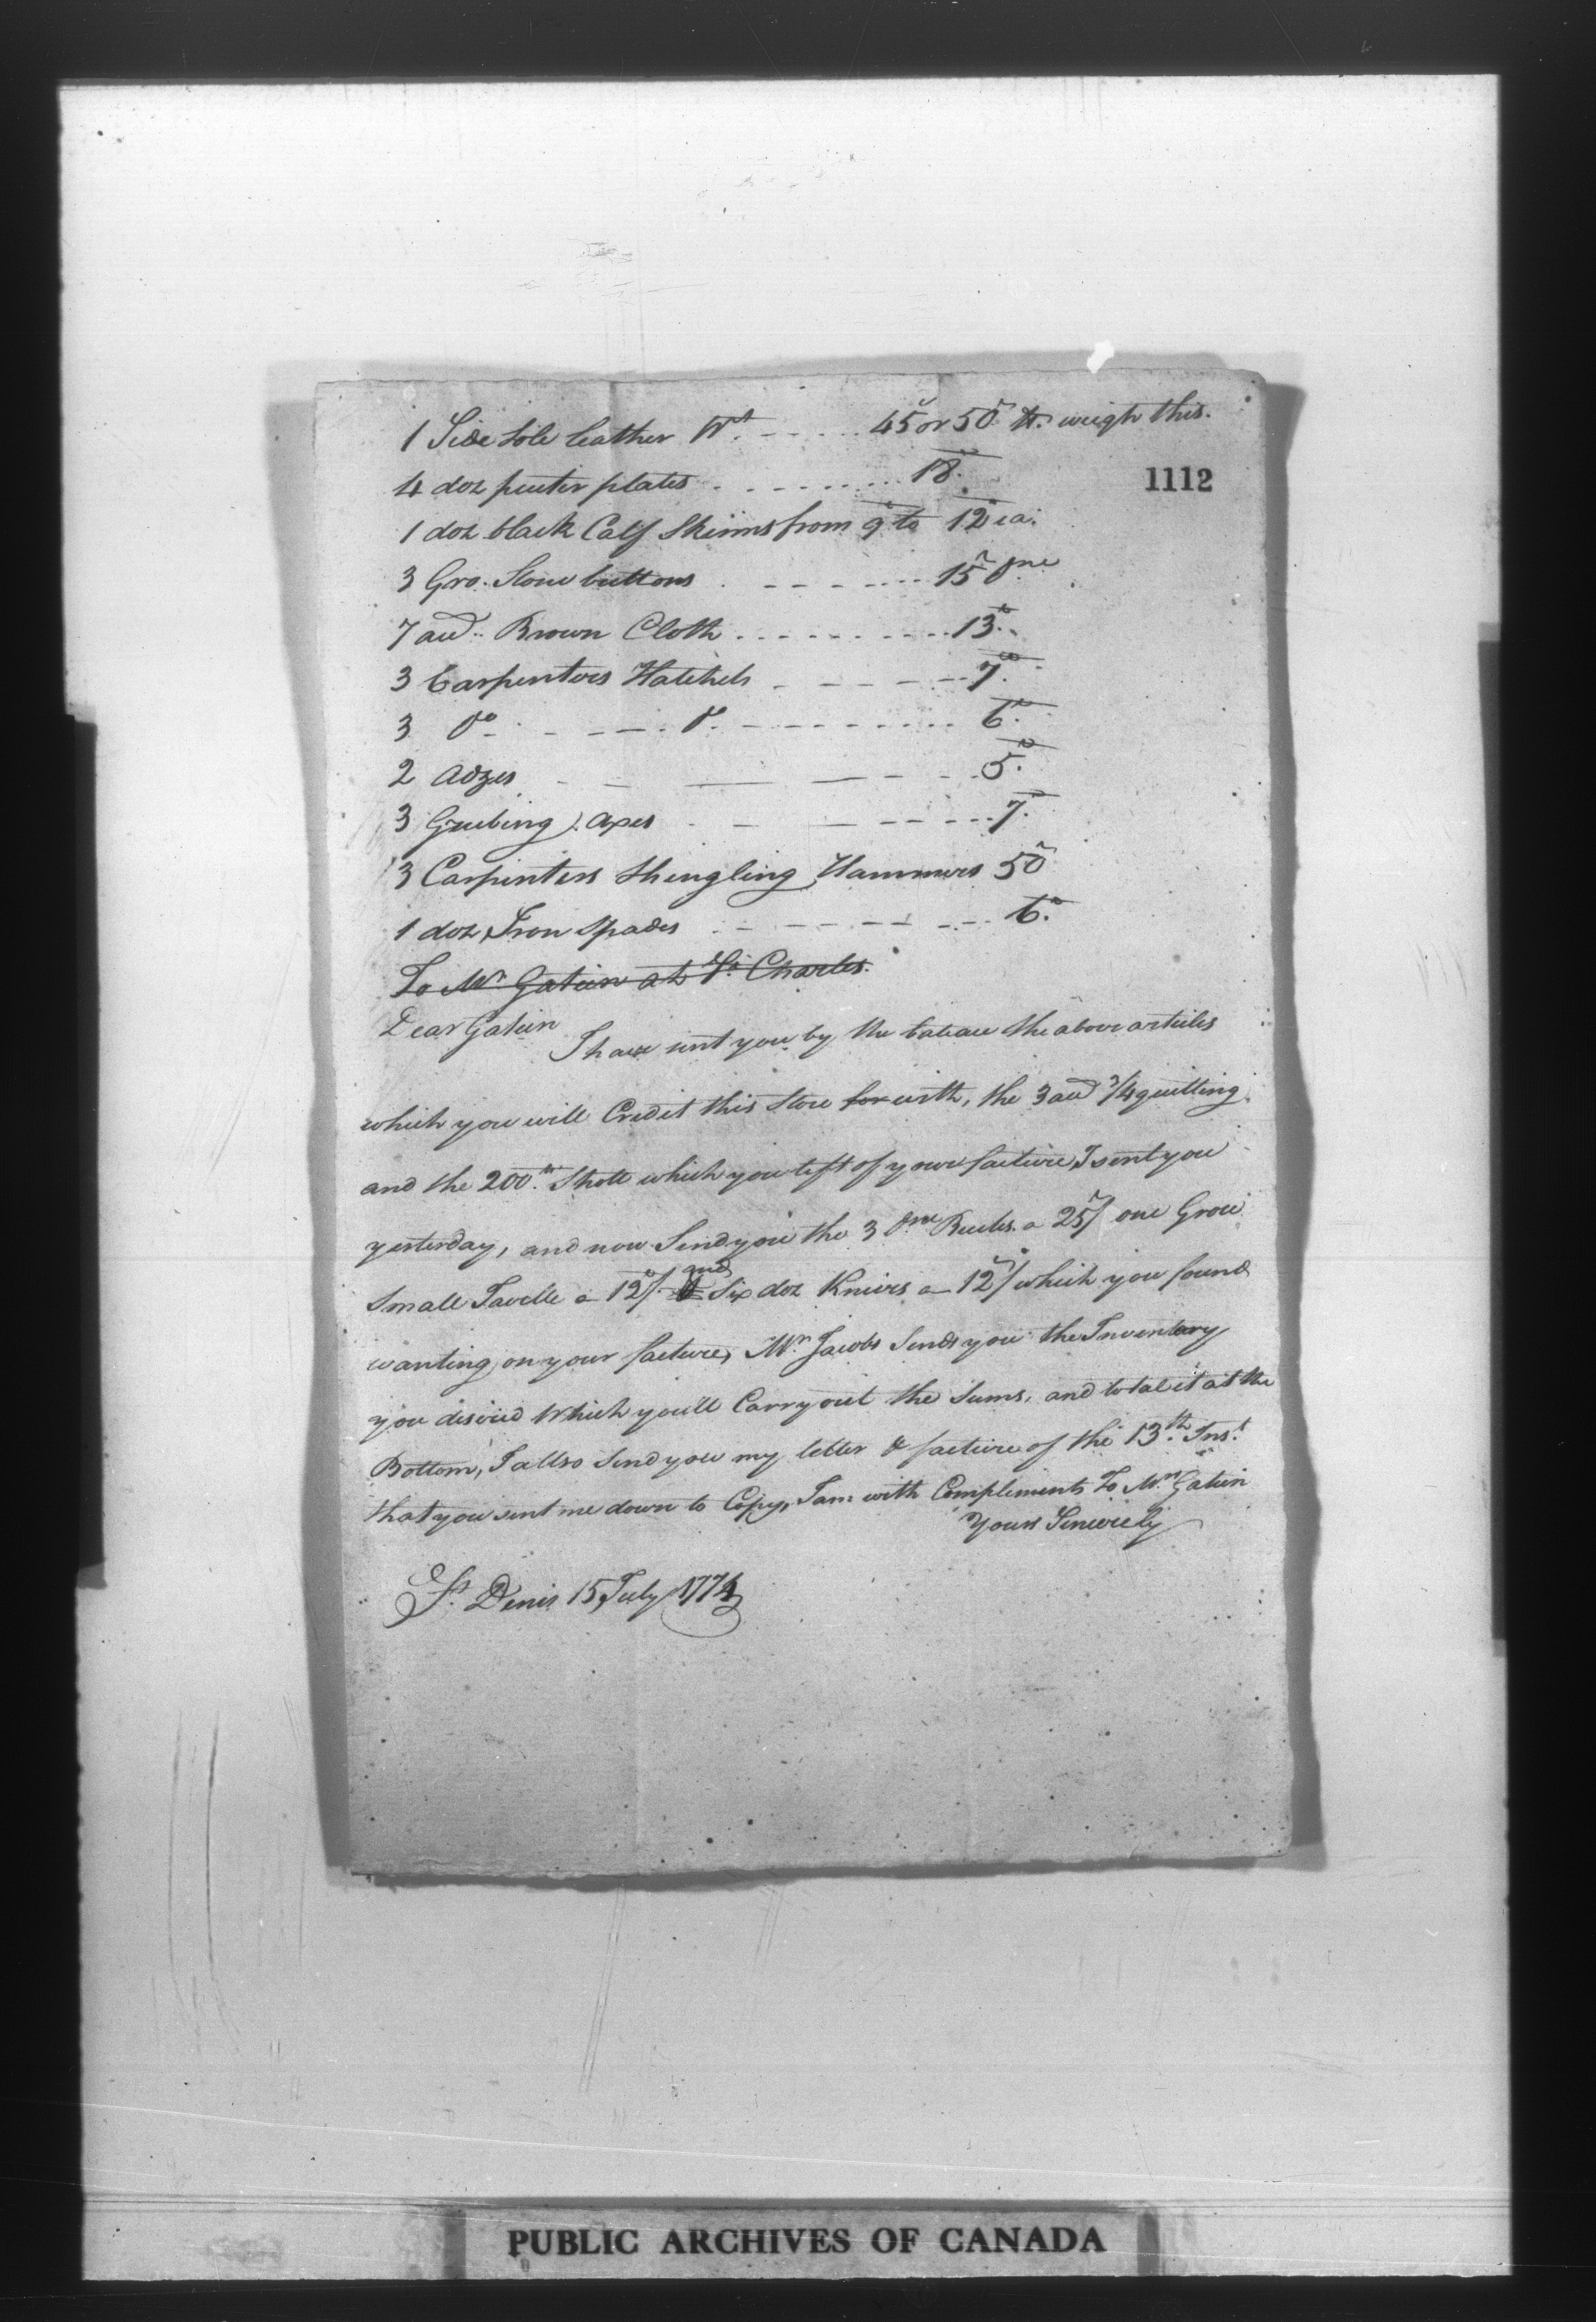 1 Side Sole leather Wt. 45s or 50s lb. weigh this.
4 doz peuter plates 18.
1112
1 doz black Calf Skinns from 9 to 12 ea.
3 Gro. Stone buttons 15s
7 aud. Brown Cloth 13.
3 Carpentors Hatchets 7.
3 do. do. 6.
2 adzes 5.
3 Grubing axes 7.
3 Carpinters Shingling Hammers 50s
1 doz Iron Spades 6.
To Mr Gatien at St. Charles.
Dear Gatien
I have sent you by the bateau the above articles
which you will Credit this Store for with, the 3 aud 3/4 quilting
and the 200 lb. Shott which you left of your facture I sent you
yesterday, and now Send you the 3 Bucks a 25s/ one Groce
Small Tavelle a 12/ and Six doz Knives a 12s/ which you found
wanting on your facture, Mr. Jacobs Sends you the Inventory
you disired Which you'll Carry out the Sums, and total it at the
Bottom, I allso Send you my letter & facture of the 13th. Inst.
that you sent me down to Copy, I am with Compliments To Mrs. Gatien
Yours Sincirely
St. Denis 15 July 1774
PUBLIC ARCHIVES OF CANADA